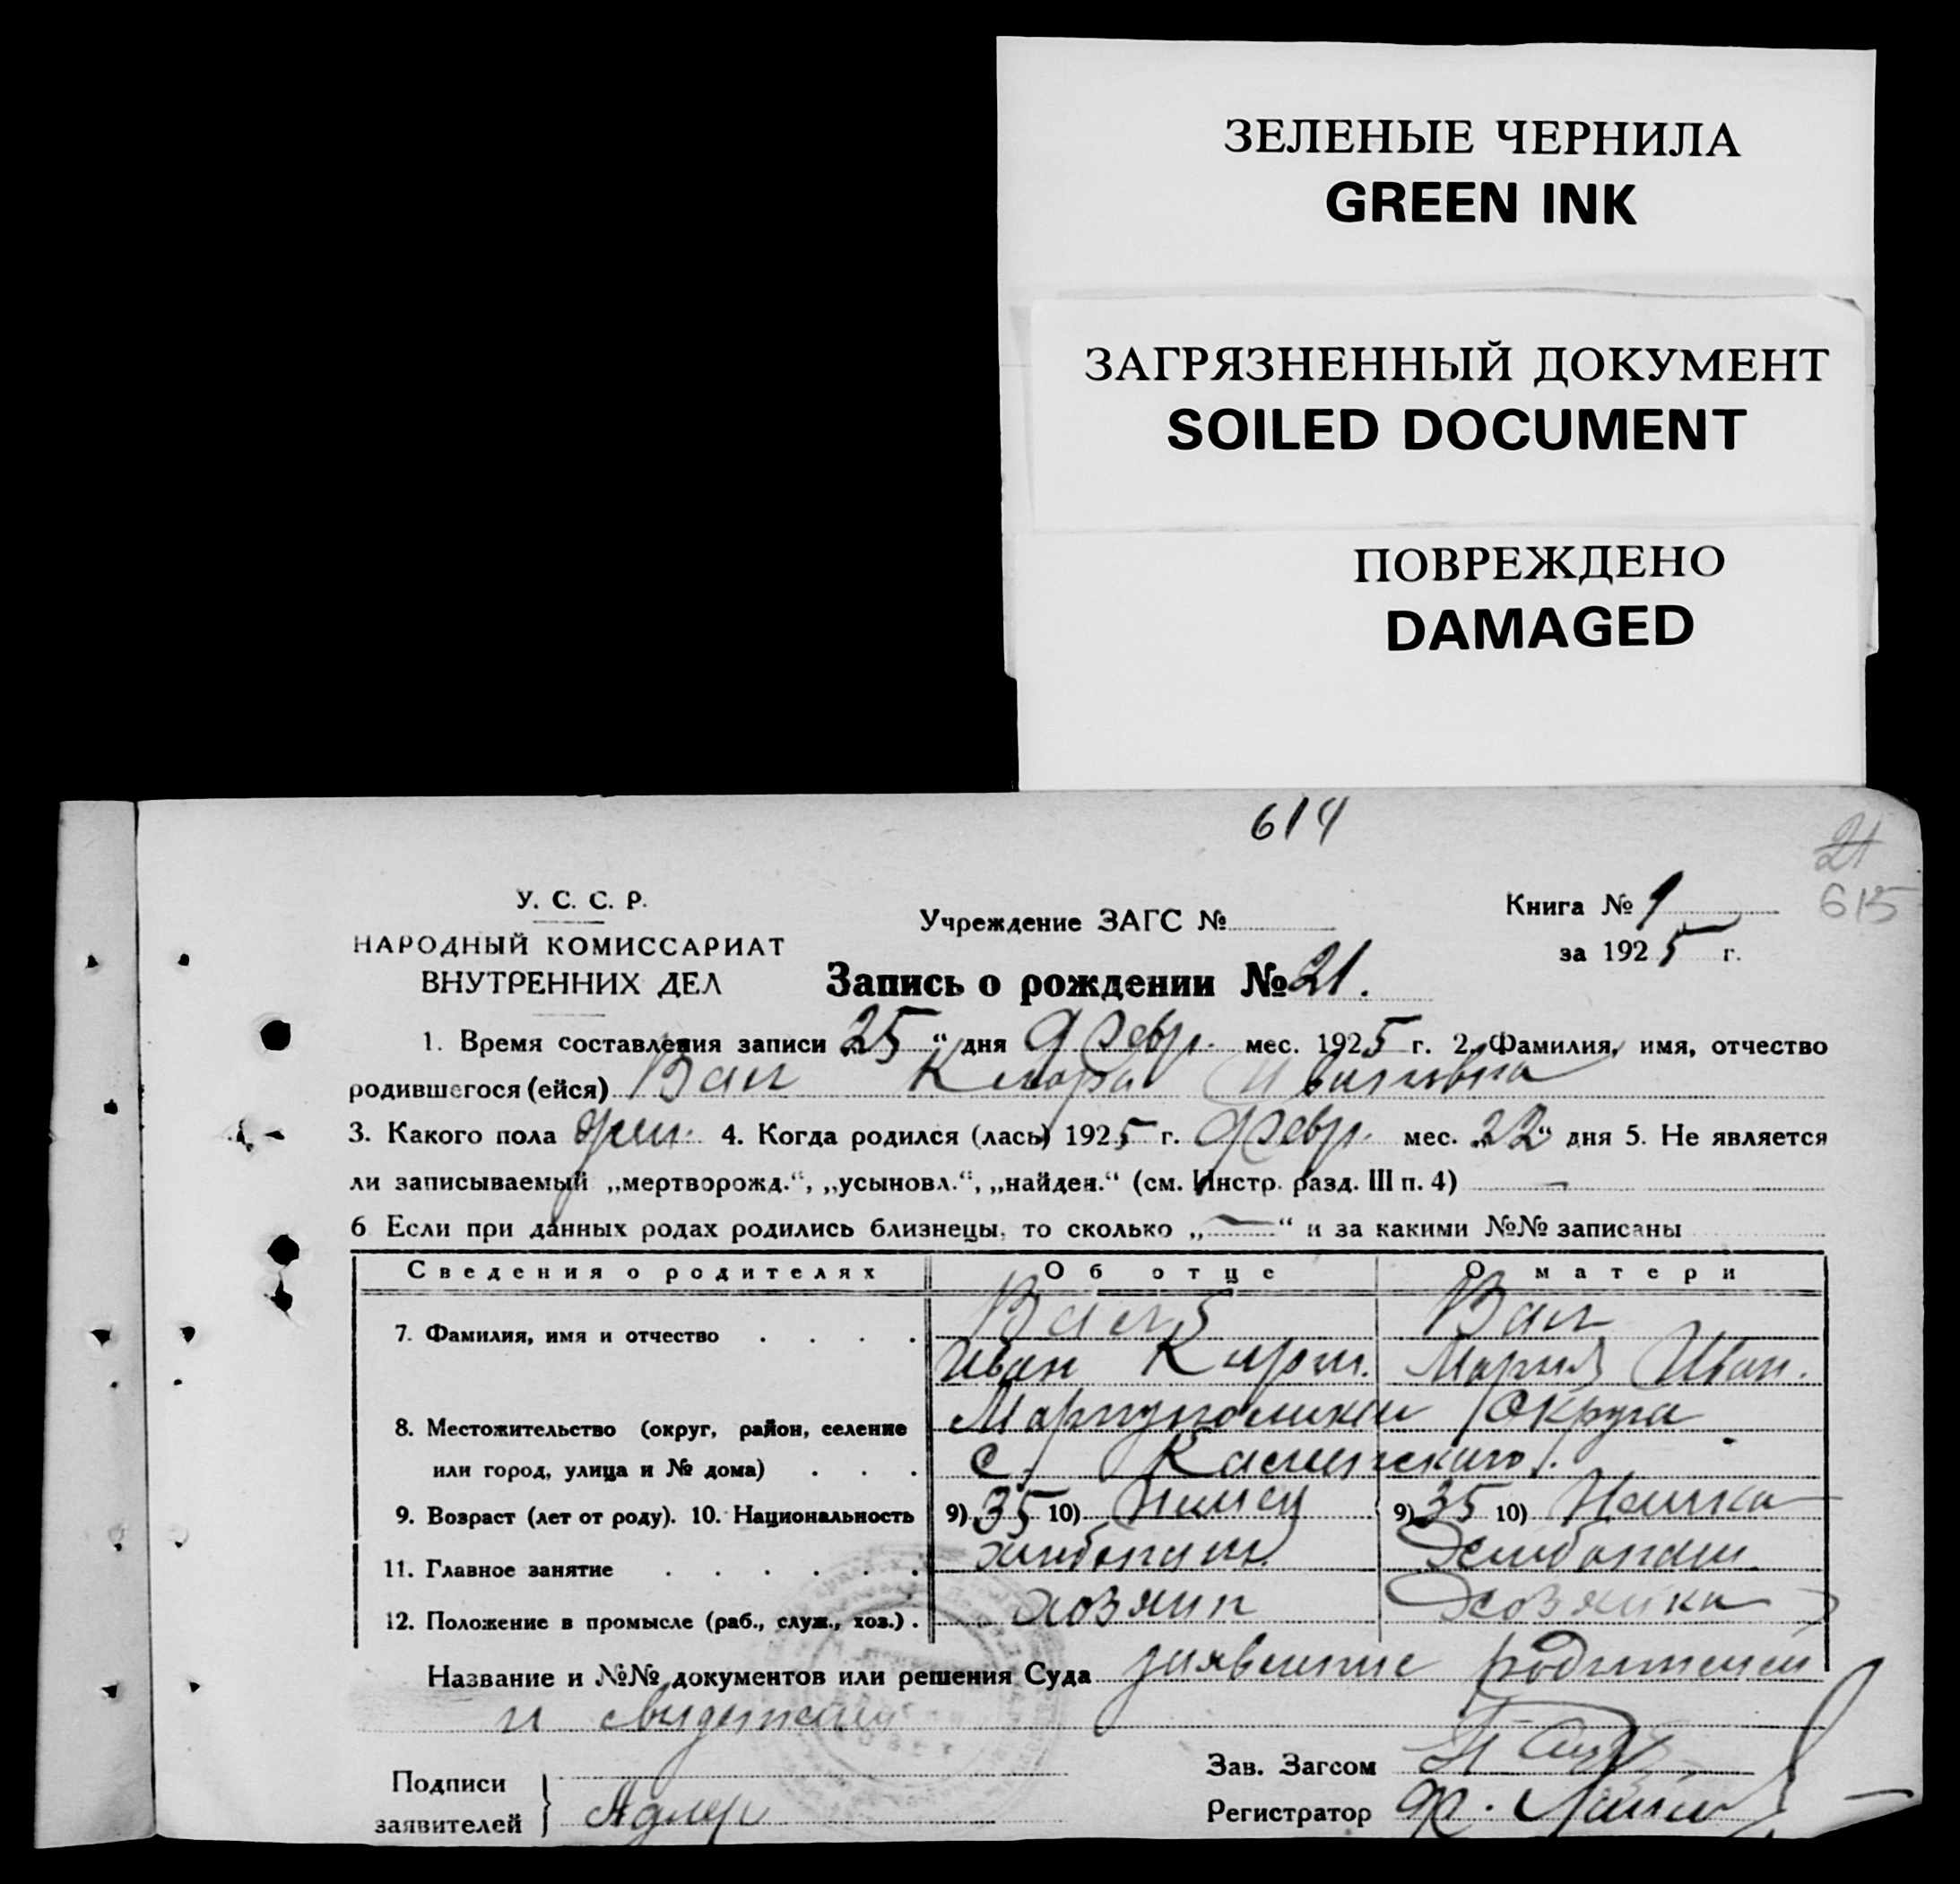 ЗЕЛЕНЫЕ ЧЕРНИЛА
GREEN INK
ЗАГРЯЗНЕННЫЙ ДОКУМЕНТ
SOILED DOCUMENT
ПОВРЕЖДЕНО
DAMAGED
614
21
615
У. С. С. Р.
НАРОДНЫЙ КОМИССАРИАТ
ВНУТРЕННИХ ДЕЛ
Учреждение ЗАГС №
Книга № 1
за 1925 г.
Запись о рождении № 21.
1. Время составления записи „25“ дня Февр. мес. 1925 г. 2. Фамилия, имя, отчество
родившегося (ейся) Валь Клара Ивановна
3. Какого пола жен. 4. Когда родился (лась) 1925 г. Февр. мес. „22“ дня 5. Не является
ли записываемый „мертворожд.“, „усыновл.“, „найден.“ (см. Инстр. разд. III п. 4) —
6 Если при данных родах родились близнецы, то сколько „—“ и за какими №№ записаны
Сведения о родителях Об отце О матери
7. Фамилия, имя и отчество . . . . Валь Валь
Иван Мария Иван.
8. Местожительство (округ, район, селение Мариупольский Округа
или город, улица и № дома) . . . с. Каменского
9. Возраст (лет от роду). 10. Национальность 9) 35 10) Немец 9) 35 10) Немка
11. Главное занятие . . . . . . хлебопаш. Хлебопаш.
12. Положение в промысле (раб., служ., хоз.) . хозяин Хозяйка
Название и №№ документов или решения Суда заявление родителей
и свидетели
Подписи
заявителей } Адлер
Зав. Загсом
Регистратор Ф.